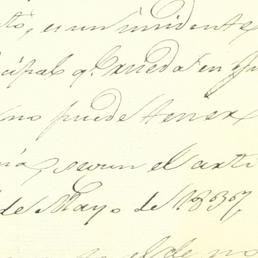 to, es un incidente
cipal qe. queda en
no puede tener
ria, segun el arti
de Mayo de 1837
el de no